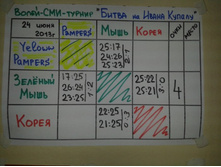 Волей-СМИ-турнир "Битва на Ивана Купалу"
24 июня 2013г. Pampers Мышь Корея очки место
Yellown Pampers 25:17 24:26 25:23
Зелёный Мышь 17:25 26:24 23:25 25:22 25:21 4
Корея 22:25 21:25